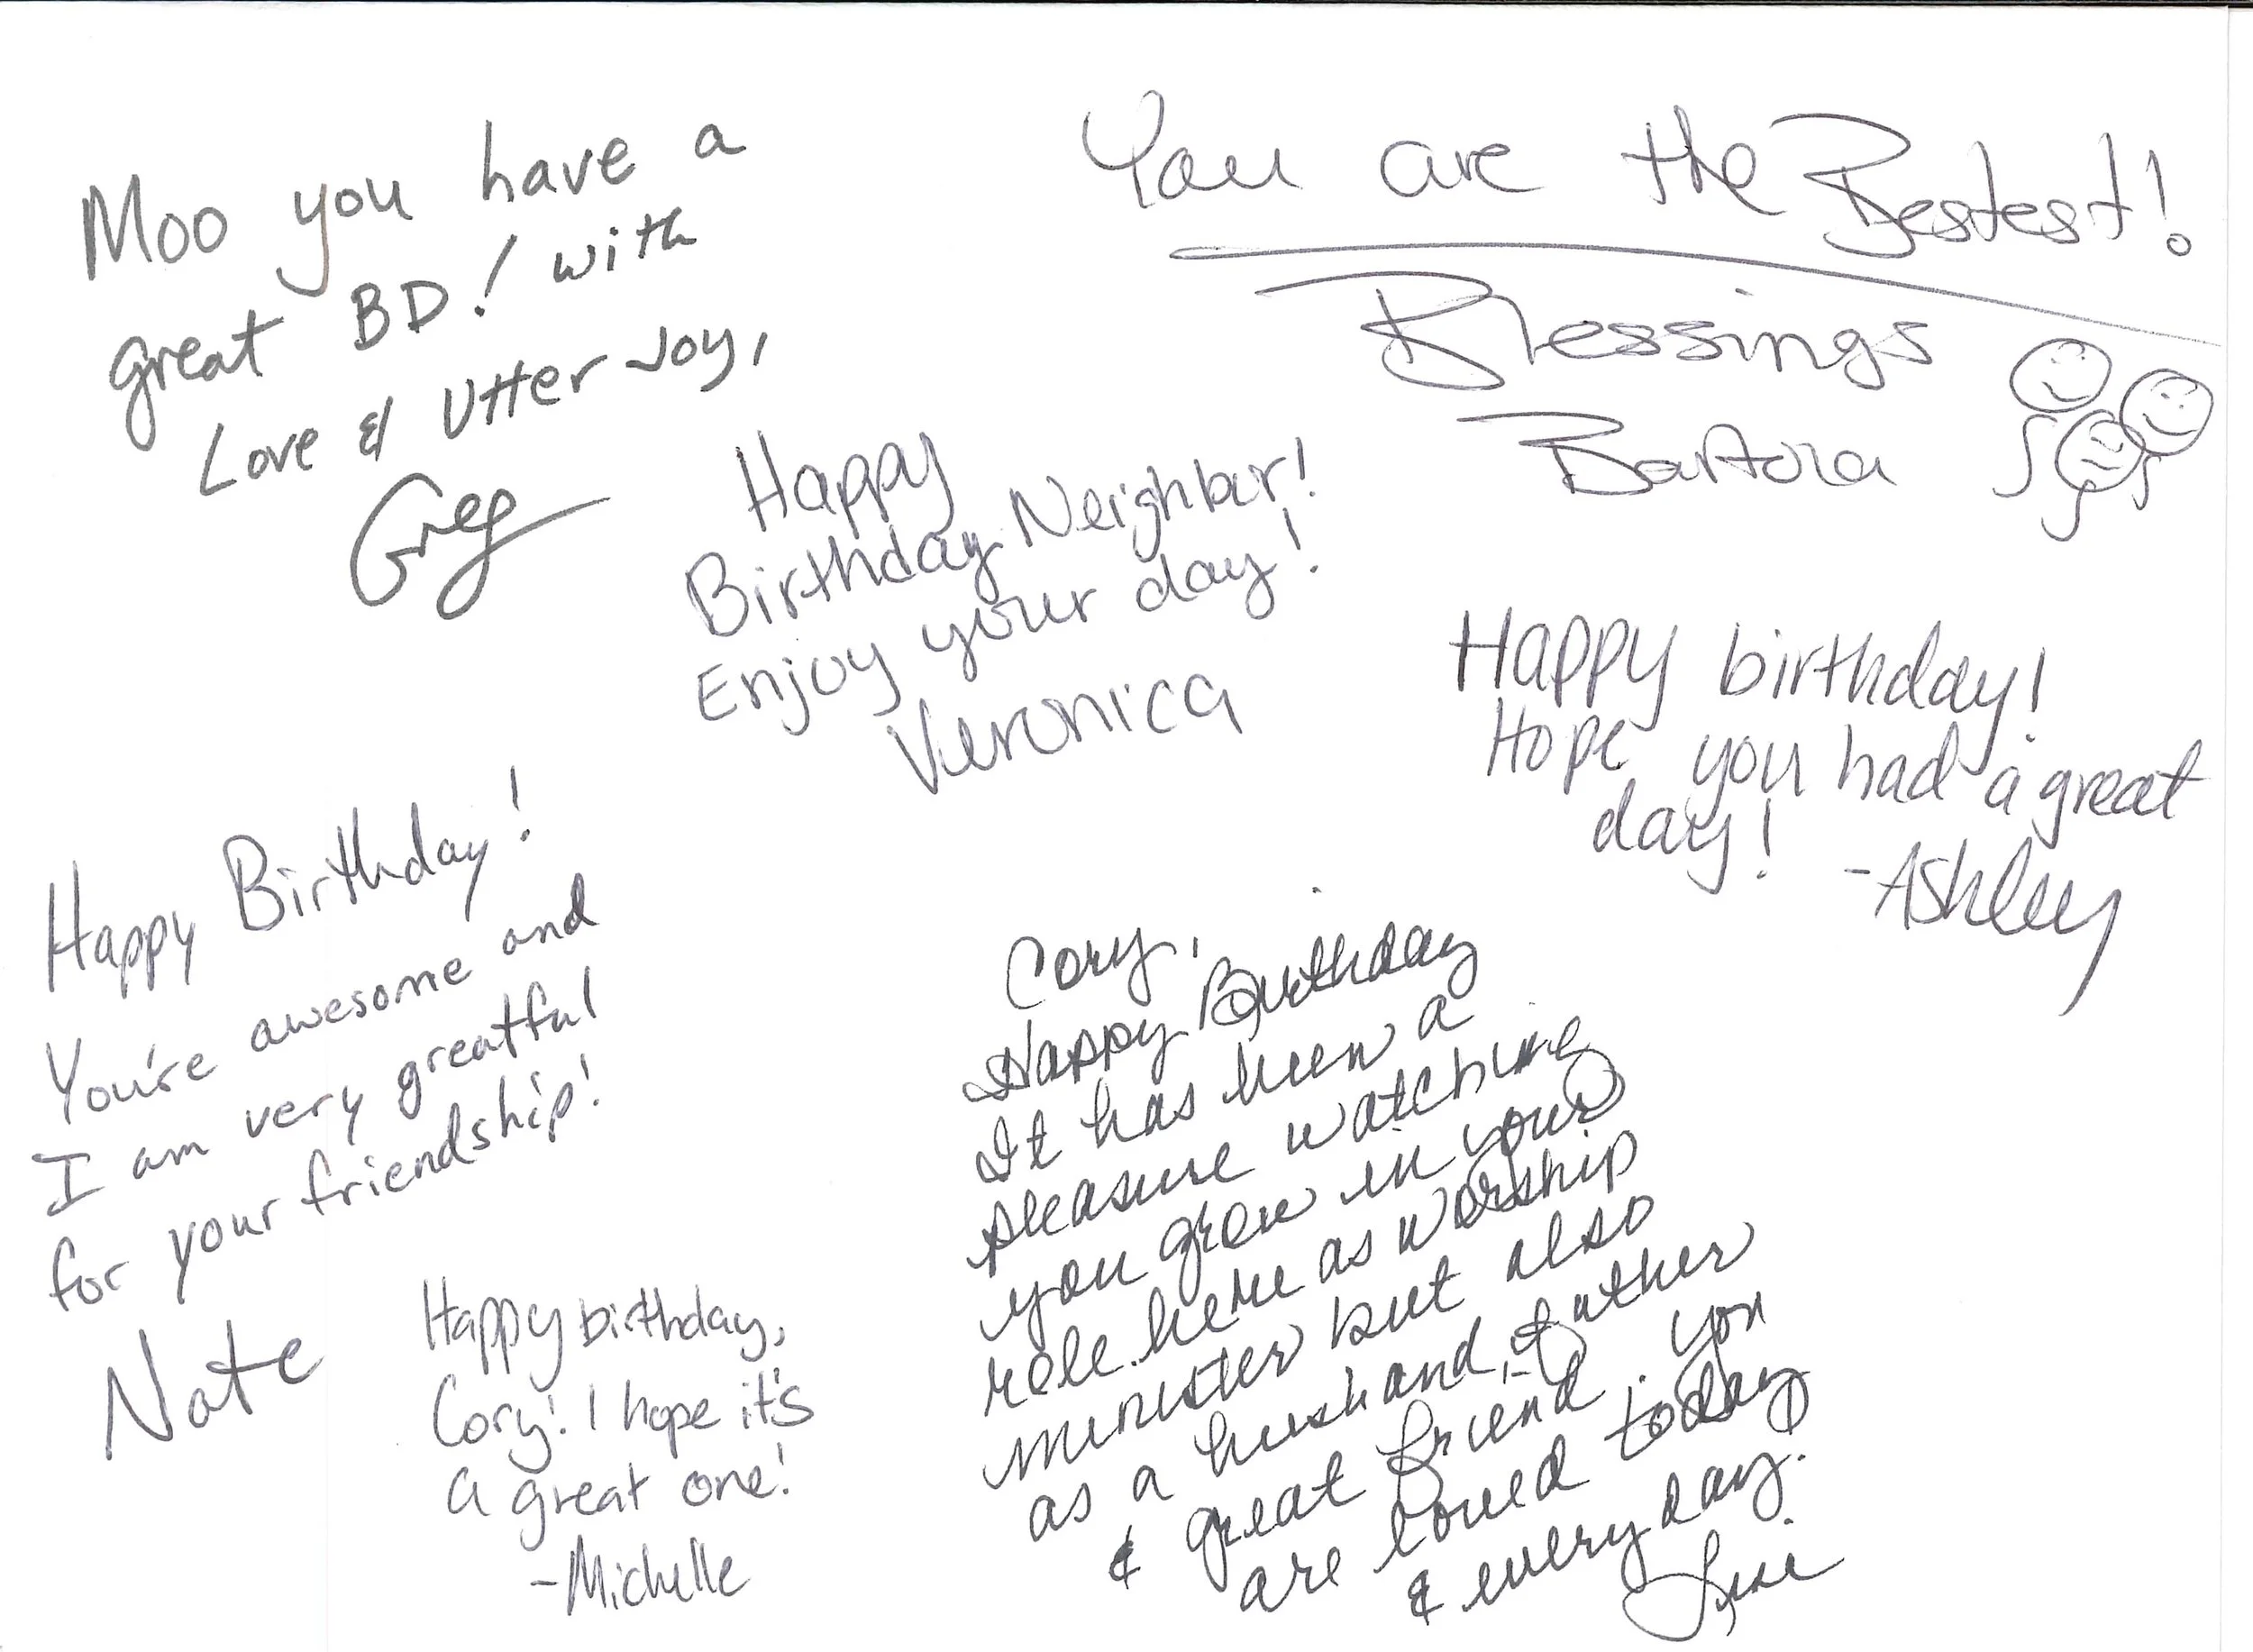 Moo you have a
great BD! with
Love & Utter Joy,
Greg
You are the Bestest!
Blessings
Barbara
Happy
Birthday Neighbor!
Enjoy your day!
Veronica
Happy birthday!
Hope you had a great
day!
-Ashley
Happy Birthday!
You're awesome and
I am very greatful
for your friendship!
Nate
Cory,
Happy Birthday
It has been a
pleasure watching
you grow in your
role here as worship
minister but also
as a husband, father
& great friend. You
are loved today
& every day.
Happy birthday,
Cory! I hope it's
a great one!
-Michelle